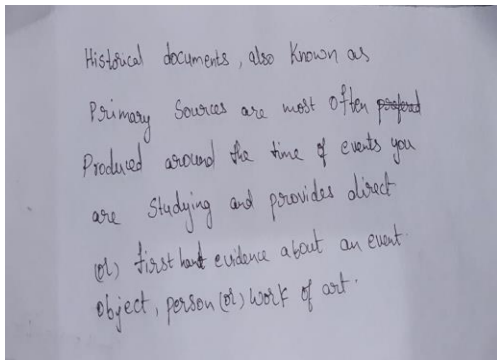 Historical documents, also Known as
Primary Sources are most often
Produced around the time of events you
are Studying and provides direct
(or) first hand evidence about an event
object, person (or) work of art.